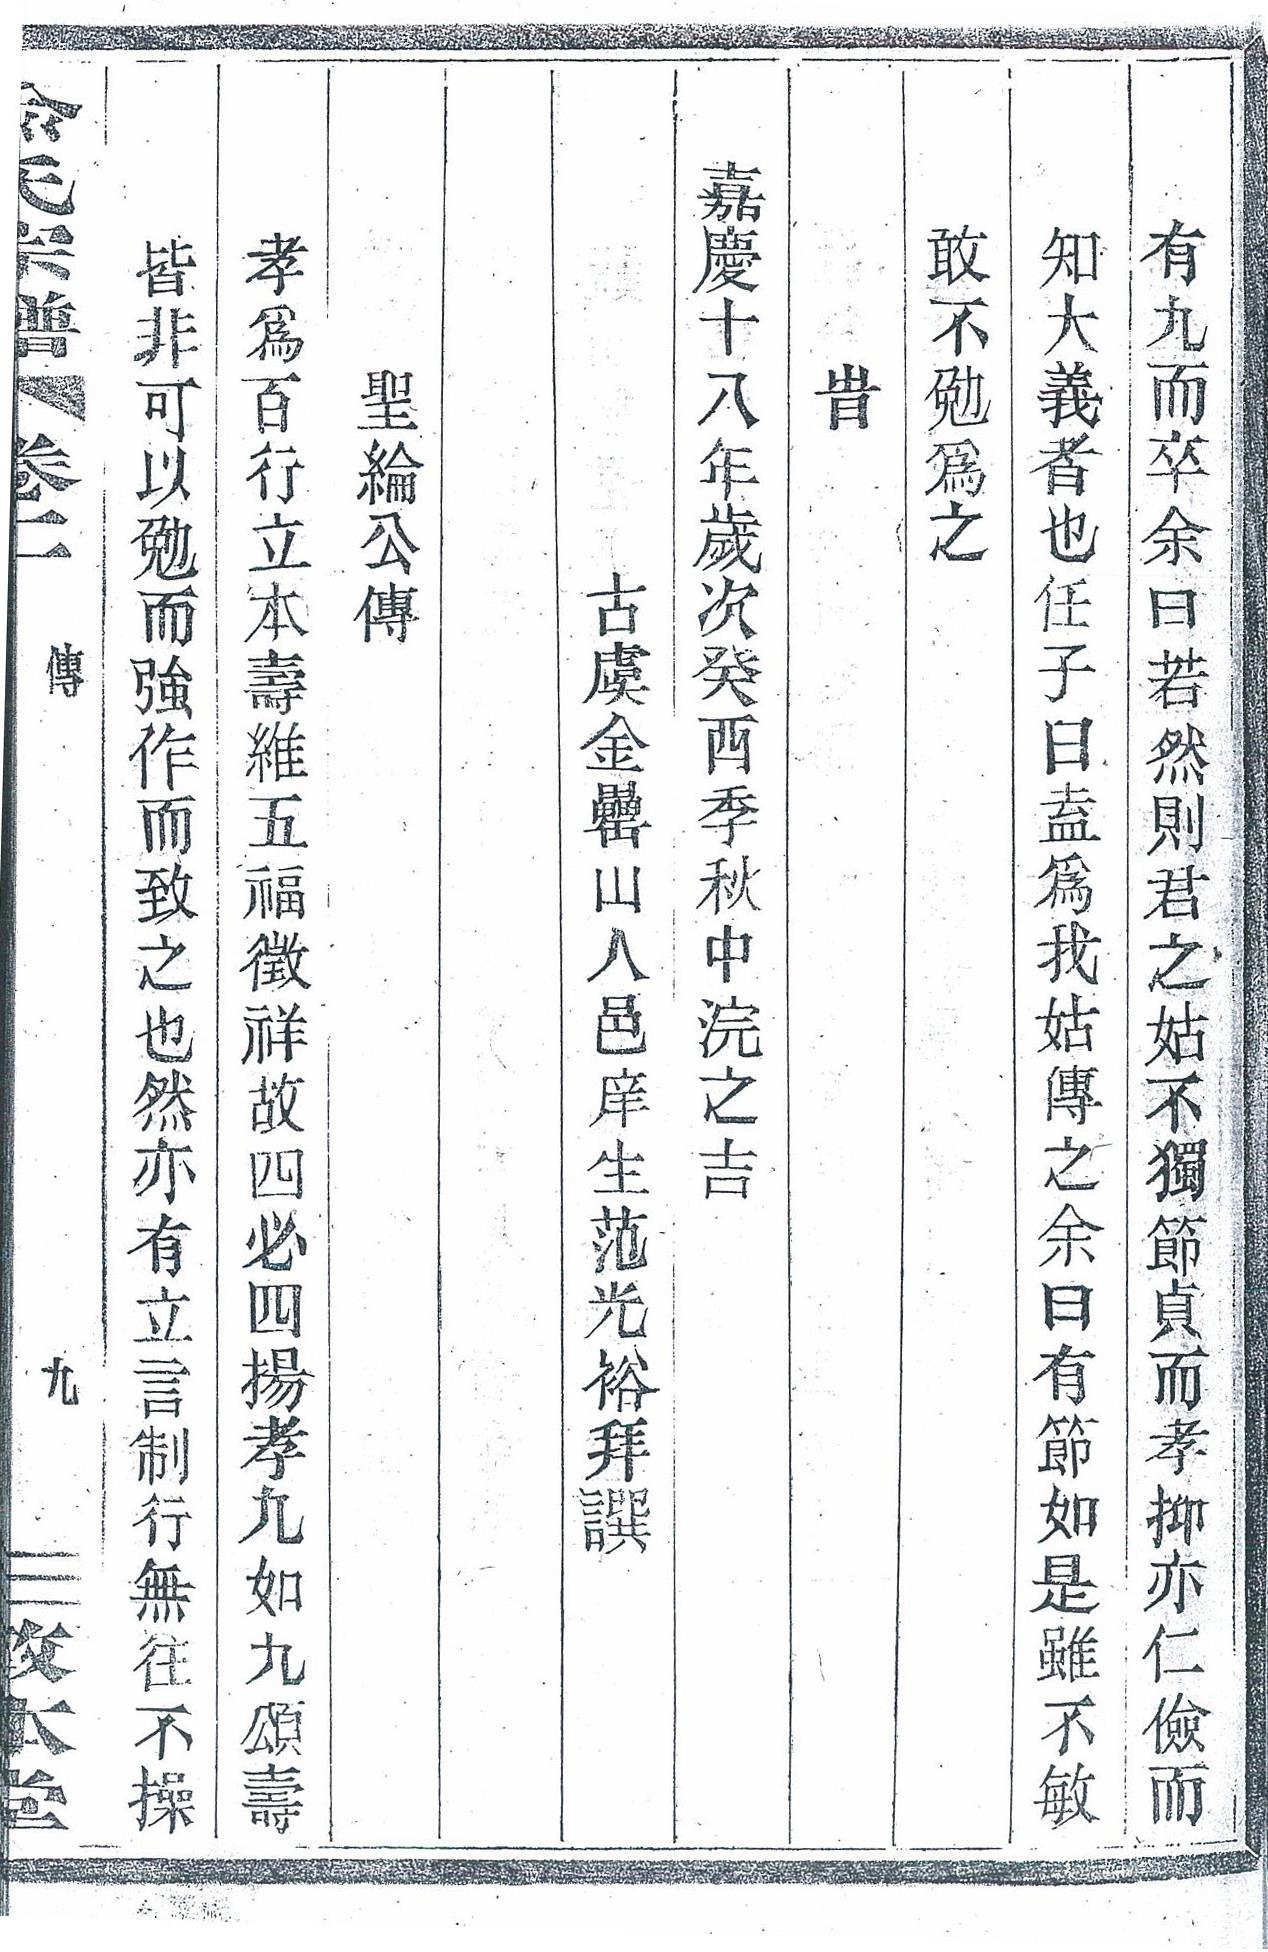 有九而卒余曰若然則君之姑不獨節貞而孝抑亦仁儉而
知大義者也任子曰盍爲我姑傳之余曰有節如是雖不敏
敢不勉爲之
旹
嘉慶十八年歲次癸酉季秋中浣之吉
古虞金罍山人邑庠生范光裕拜譔
聖綸公傳
孝爲百行立本壽維五福徵祥故四必四揚孝九如九頌壽
皆非可以勉而強作而致之也然亦有立言制行無往不操
氏宗譜 卷二 傳 九 本堂